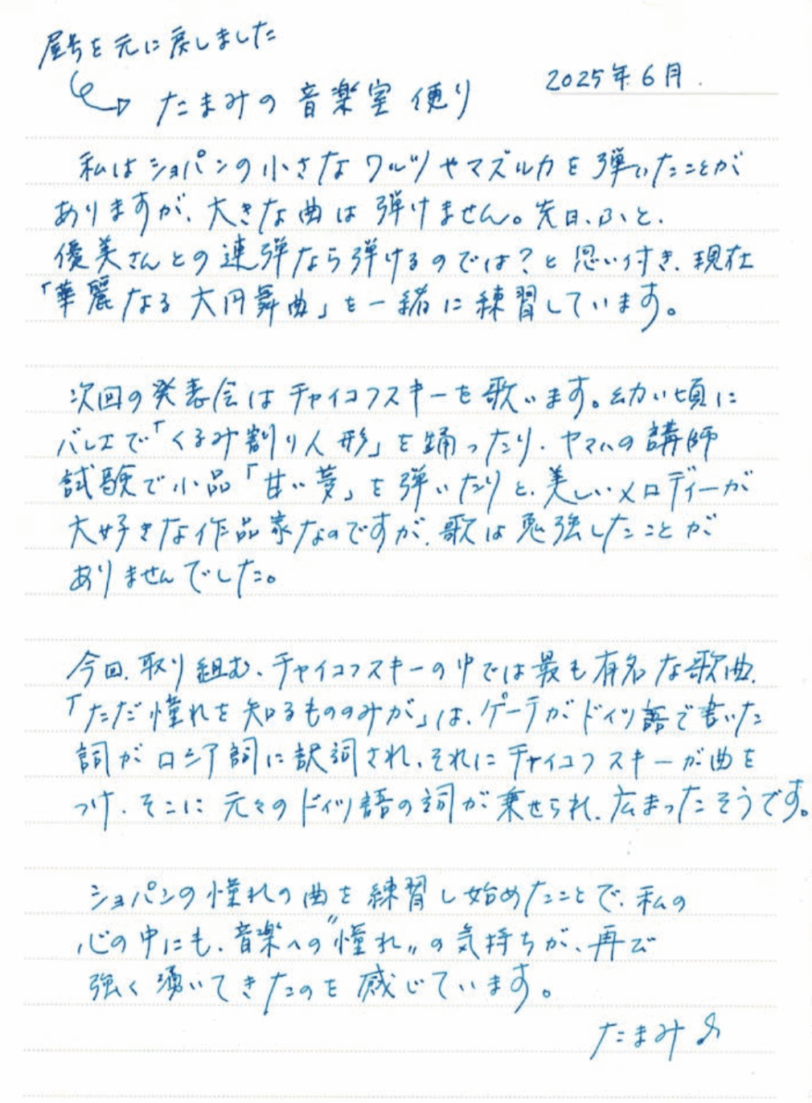 屋号を元に戻しました
2025年6月.
たまみの音楽室便り
私はショパンの小さなワルツやマズルカを弾いたことが
ありますが、大きな曲は弾けません。先日、ふと、
優美さんとの連弾なら弾けるのでは?と思い付き、現在
「華麗なる大円舞曲」を一緒に練習しています。
次回の発表会はチャイコフスキーを歌います。幼い頃に
バレエで「くるみ割り人形」を踊ったり、ヤマハの講師
試験で小品「甘い夢」を弾いたりと、美しいメロディーが
大好きな作品家なのですが、歌は勉強したことが
ありませんでした。
今回、取り組む、チャイコフスキーの中では最も有名な歌曲、
「ただ憧れを知るもののみが」は、ゲーテがドイツ語で書いた
詞がロシア詞に訳詞され、それにチャイコフスキーが曲を
つけ、そこに元々のドイツ語の詞が乗せられ、広まったそうです。
ショパンの憧れの曲を練習し始めたことで、私の
心の中にも、音楽への"憧れ"の気持ちが、再び
強く湧いてきたのを感じています。
たまみ♪